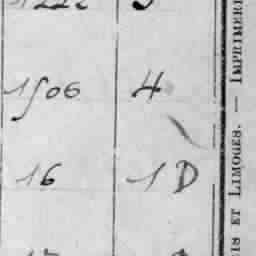 1222
1506 4
16 1 D
IS ET LIMOGES. — IMPRIMERI